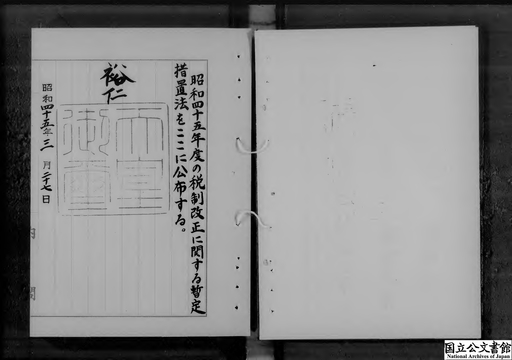 昭和四十五年度の税制改正に関する暫定
措置法をここに公布する。
裕仁
天皇御璽
昭和四十五年三月二十七日
内閣
国立公文書館
National Archives of Japan